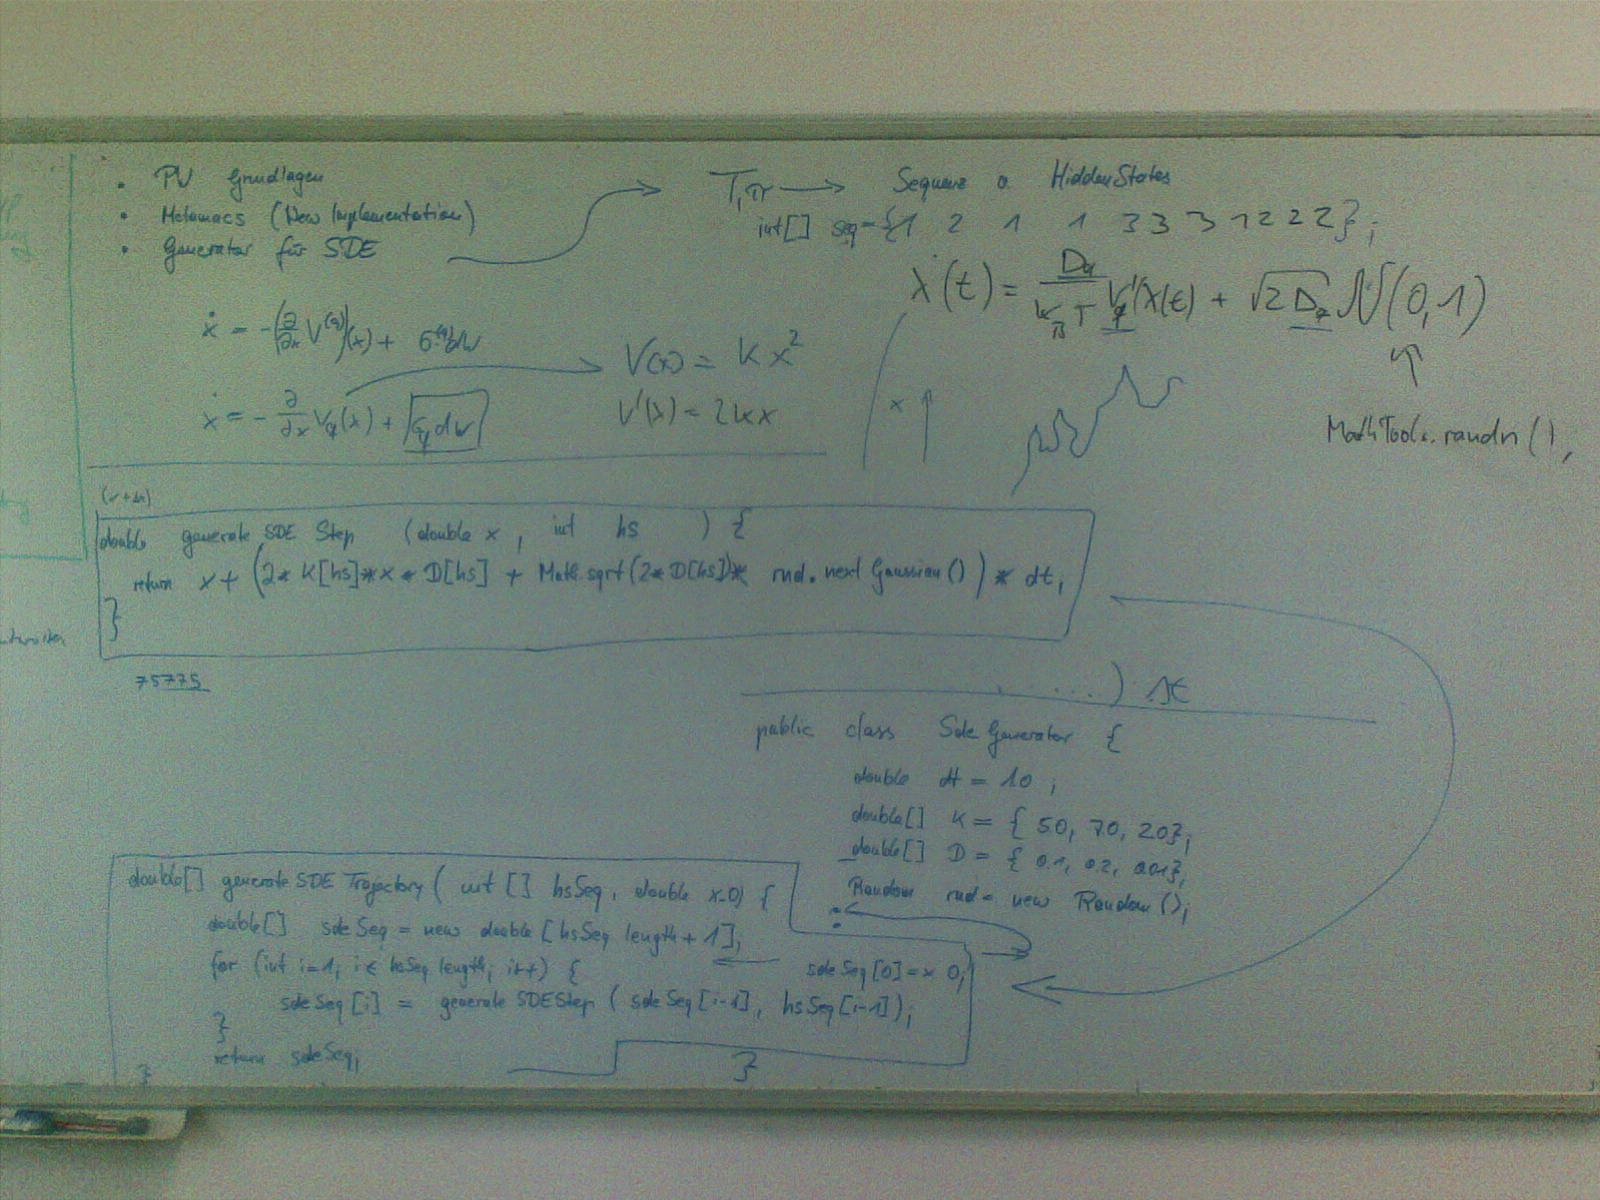 • PV Grundlagen
• Metamacs (New Implementation)
• Generator für SDE
T, π → Sequenz v. HiddenStates
int[] seq={1 2 1 1 3 3 3 1 2 2 2};
ẋ(t) = D_q / K_B T V'_q(x(t) + √2D_q N(0,1)
MathTools.randn(),
ẋ = -(∂/∂x V^(q))(x) + σ^(q)dW
ẋ = - ∂/∂x V_q(x) + σ_q dW
V(x) = k x²
V'(x) = 2kx
x ↑
double generate SDE Step (double x, int hs ) {
return x + (2* K[hs]*x * D[hs] + Math.sqrt(2*D[hs])* rnd.next Gaussian()) * dt;
}
75775
.....) Δt
public class Sde Generator {
double dt = 10;
double[] K = { 5.0, 7.0, 2.0};
double[] D = { 0.1, 0.2, 0.01};
Random rnd = new Random();
double[] generate SDE Trajectory ( int [] hsSeq, double x0) {
double[] sdeSeq = new double [hsSeq length + 1];
sdeSeq[0]=x0;
for (int i=1; i< hsSeq length; i++) {
sdeSeq [i] = generate SDEStep ( sdeSeq [i-1], hsSeq [i-1]);
}
return sdeSeq;
}
}